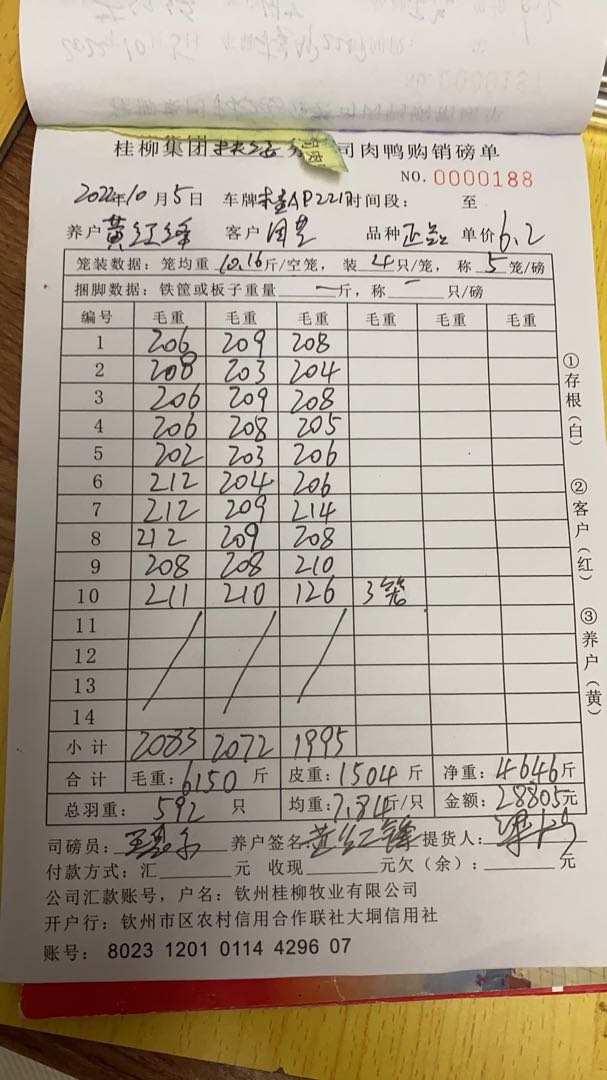 桂柳集团 分 司肉鸭购销磅单
NO. 0000188
2022年10月5日 车牌桂AP221 时间段： 至
养户黄红锋 客户 品种 单价6.2
笼装数据：笼均重10.16斤/空笼，装4只/笼，称5笼/磅
捆脚数据：铁筐或板子重量一斤，称一只/磅
编号 毛重 毛重 毛重 毛重 毛重 毛重
1 206 209 208
2 208 203 204
3 206 209 208
4 206 208 205
5 202 203 206
6 212 204 206
7 212 209 214
8 212 209 208
9 208 208 210
10 211 210 126 3笼
11
12
13
14
小计 2083 2072 1995
合计 毛重：6150斤 皮重：1504斤 净重：4646斤
总羽重：592只 均重：7.84斤/只 金额：28805元
司磅员： 养户签名黄红锋提货人：
付款方式：汇 元 收现 元欠（余）： 元
公司汇款账号，户名：钦州桂柳牧业有限公司
开户行：钦州市区农村信用合作联社大垌信用社
账号： 8023 1201 0114 4296 07
①存根（白）
②客户（红）
③养户（黄）